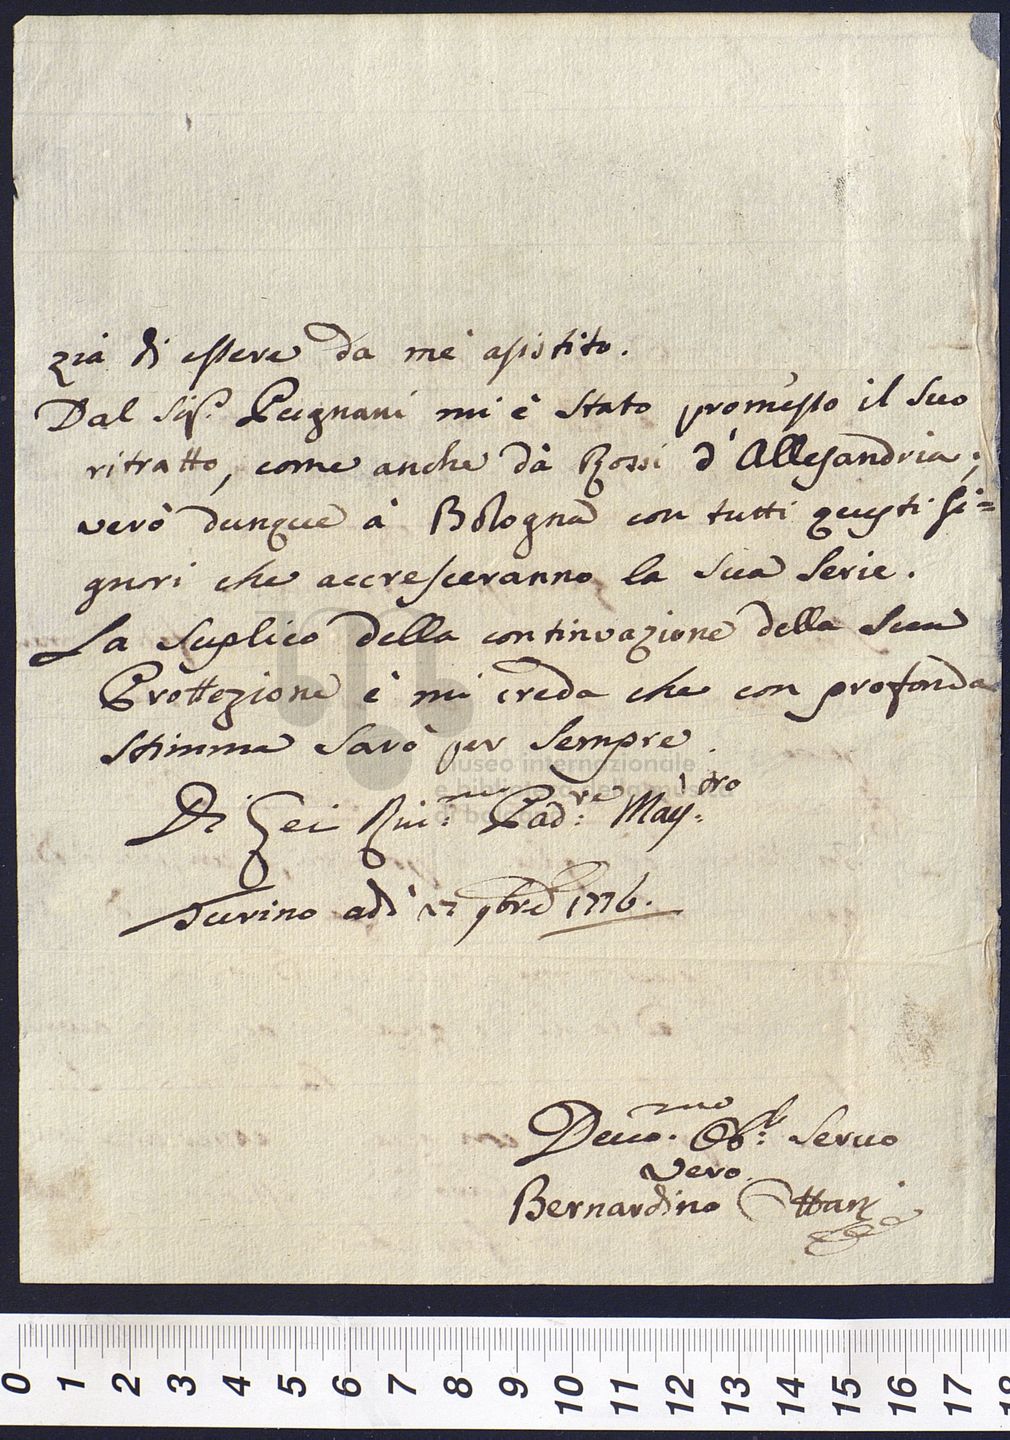 zia di essere da me assistito.
Dal Sig.r Pugnani mi è stato promesso il suo
ritratto, come anche dà Rossi d'Allesandria;
verò dunque à Bologna con tutti questi si=
gnori che accresceranno la sua serie.
La suplico della continuazione della sua
Prottezione è mi creda che con profonda
stimma sarò per sempre.
Di Lei Rui:mo Pad:re Mays:tro
Turino adì 27 9bre 1776.
Deuo:mo Ob: Seruo
vero
Bernardino Ottani
museo internazionale
e biblioteca della musica
di bologna
0 1 2 3 4 5 6 7 8 9 10 11 12 13 14 15 16 17 18